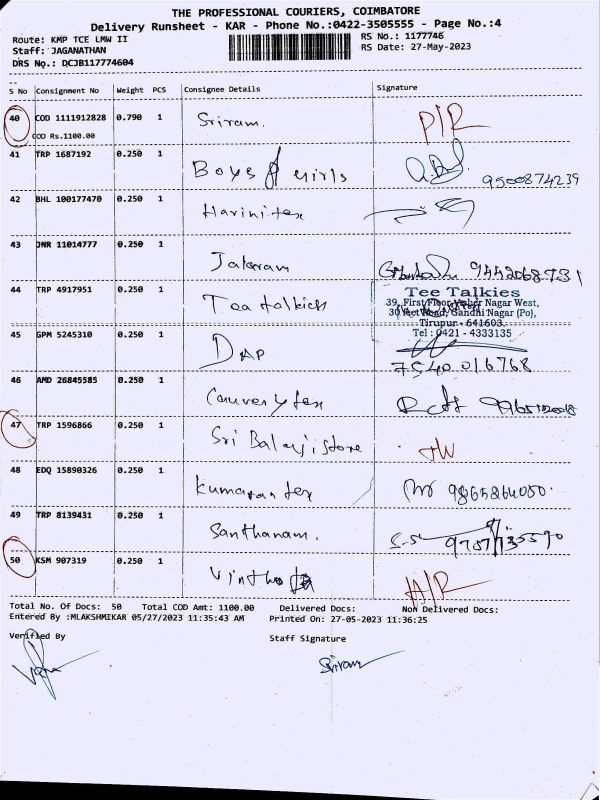 THE PROFESSIONAL COURIERS, COIMBATORE
Delivery Runsheet - KAR - Phone No.:0422-3505555 - Page No.:4
Route: KMP TCE LMW II RS No.: 1177746
Staff: JAGANATHAN RS Date: 27-May-2023
DRS No.: DCJB117774604
S No Consignment No Weight PCS Consignee Details Signature
40 COD 1111912828 0.790 1 Sriram. P/R
COD Rs.1100.00
41 TRP 1687192 0.250 1 Boys & girls 9500874239
42 BHL 100177470 0.250 1 Harini tex
43 JNR 11014777 0.250 1 Jalaram
44 TRP 4917951 0.250 1 Tea talkies Tee Talkies
39, First Floor, Nagar West,
30 Feet Road, Gandhi Nagar (Po),
Tirupur - 641603.
Tel : 0421 - 4333135
45 GPM 5245310 0.250 1 DAP 7540 016768
46 AMD 26845585 0.250 1 tex
47 TRP 1596866 0.250 1 Sri Balaji store
48 EDQ 15890326 0.250 1 Kumaran tex 9865864050.
49 TRP 8139431 0.250 1 Santhanam.
50 KSM 907319 0.250 1
Total No. Of Docs: 50 Total COD Amt: 1100.00 Delivered Docs: Non Delivered Docs:
Entered By :MLAKSHMIKAR 05/27/2023 11:35:43 AM Printed On: 27-05-2023 11:36:25
Verified By Staff Signature
Sriram